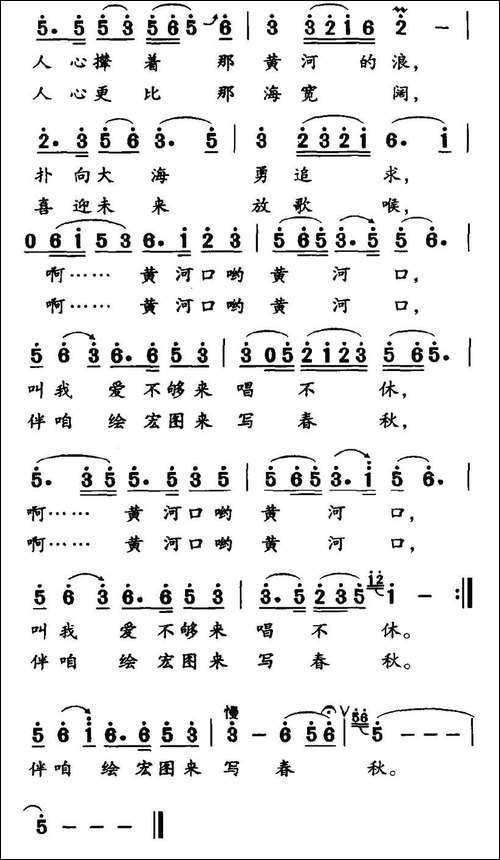 5. 5 5 3 5 6 5 6 | 3 3 2 1 6 2 – |
人心撵着 那 黄河 的浪,
人心更比 那 海宽 阔,
2. 3 5 6 3. 5 | 3 2 3 2 1 6. 1 |
扑向大海 勇追 求,
喜迎未来 放歌 喉,
0 6 1 5 3 6. 1 2 3 | 5 6 5 3. 5 5 6. |
啊…… 黄河口哟黄 河 口,
啊…… 黄河口哟黄 河 口,
5 6 3 6. 6 5 3 | 3 0 5 2 1 2 3 5 6 5. |
叫我 爱不够来 唱 不 休,
伴咱 绘宏图来 写 春 秋,
5. 3 5 5. 5 3 5 | 5 6 5 3. 1 5 6. |
啊…… 黄河口哟黄 河 口,
啊…… 黄河口哟黄 河 口,
5 6 3 6. 6 5 3 | 3. 5 2 3 5 12 1 – :‖
叫我 爱不够来 唱 不 休。
伴咱 绘宏图来 写 春 秋。
慢
5 6 1 6. 6 5 3 | 3 – 6 5 6 V | 56 5 – – – |
伴咱 绘宏图来 写 春 秋。
5 – – – ‖